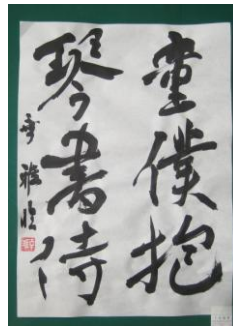 童僕抱
琴書侍